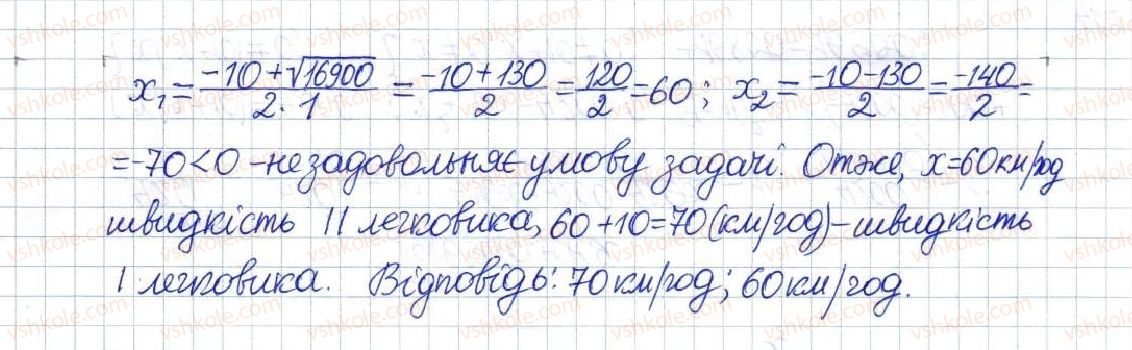 x₁ = (-10+√16900)/(2·1) = (-10+130)/2 = 120/2 = 60; x₂ = (-10-130)/2 = -140/2 =
= -70 < 0 - не задовольняє умову задачі. Отже, x = 60 км/год
швидкість II легковика, 60 + 10 = 70 (км/год) - швидкість
I легковика. Відповідь: 70 км/год; 60 км/год.